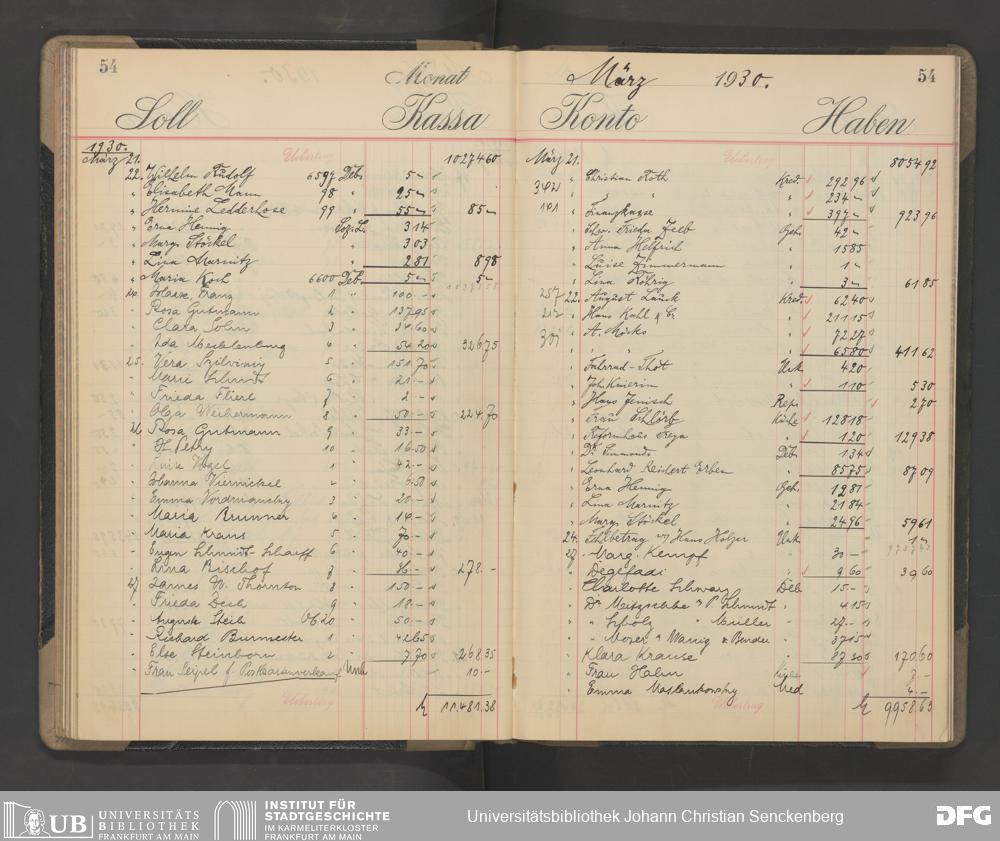 54
Monat
Soll
Kassa
1930.
Uebertrag
März 21. 10274 60
22. Wilhelm Rudolf 6597 Deb. 5 –
" Elisabeth Mann 98 " 25 –
" Hermine Ledderhose 99 " 55 – 85 –
" Erna Hennig Soz. L. 3 14
" Marg. Stöckel " 3 03
" Lina Marnitz " 2 81 8 98
" Maria Koch 6600 Deb. 5 – 5 –
24. Haase, Franz 1 " 100. –
" Rosa Gutmann 2 " 137.95
" Clara Sohn 3 " 34.60
" Ida Mecklenburg 4 " 54.20 326.75
25. Vera 5 " 151.70
" Marie Schmidt 6 " 21. –
" Frieda Flierl 7 " 2. –
" Olga Weibermann 8 " 50. – 224.70
26. Rosa Gutmann 9 " 33. –
" Petry 10 " 16.50
" Vogel 1 " 42. –
" Johanna Viernickel 2 " 6.50
" Emma 3 " 20. –
" Maria Brunner 4 " 14. –
" Maria Kraus 5 " 70 –
" Eugen Schmidt-Scharff 6 " 40. –
" Lina Bischof 7 " 36. – 278. –
27. James W. Thornton 8 " 150. –
" Frieda Deeb 9 " 18. –
" Auguste Steib 6620 " 50. –
" Richard Burmester 1 " 42.65
" Else Steinborn 2 " 7.70 268.35
" Frau Seipel f. Postkartenverkauf Unk 10. –
Uebertrag
11.481.38
März 1930.
54
Konto
Haben
Uebertrag
März 21. 8054 92
" Christian Roth Kred. 292 96
342 " " 234 –
181 " Frankfurter " 397 – 923 96
" Frieda Geh. 42 –
" Anna Helfrich " 15 85
" Luise Zimmermann " 1 –
" Lina Röhrig " 3 – 61 85
257 22. August Lauck Kred. 62 40
212 " Hans Kahl & Co " 211 15
301 " A. " 72 27
" " 65 80 411 62
" Fahrrad-Thöt Unk. 4 20
" Joh. Knierim " 1 10 5 30
" Hans Jenisch Rep. 2 70
" Frau Schlörb Küche 128 18
" Reformhaus Freya " 1 20 129 38
" Dr. Simmonds Deb. 1 34
" Leonhard Reichert Erben " 85 75 87 09
" Erna Hennig Geh. 12 81
" Lina Marnitz " 21 84
" Marg. Stöckel " 24 96 59 61
24. Fehlbetrag Hans Holzer Unk. 1 –
27. Marg. Kempf " 30 –
" Degefadi " 9 60 39 60
" Charlotte Schwarz Deb 15. –
" Dr. P. Schmidt " 4 15
" " Müller " 27. –
" " Moser " & Bender " 37.15
" Klara Krause " 87 30 170.60
" Frau Hahn Küche 7. –
" Emma Med 4. –
Uebertrag
9958.63
UB
UNIVERSITÄTS
BIBLIOTHEK
FRANKFURT AM MAIN
INSTITUT FÜR
STADTGESCHICHTE
IM KARMELITERKLOSTER
FRANKFURT AM MAIN
Universitätsbibliothek Johann Christian Senckenberg
DFG